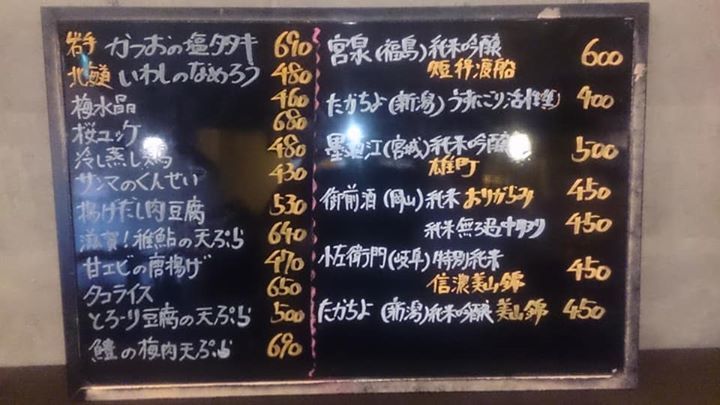 岩手 かつおの塩タタキ 690
北海道 いわしのなめろう 480
梅水晶 460
桜ユッケ 680
冷し蒸し鶏 480
サンマのくんせい 430
揚げだし肉豆腐 530
滋賀!稚鮎の天ぷら 640
甘エビの唐揚げ 470
タコライス 650
とろーり豆腐の天ぷら 500
鱧の梅肉天ぷら 690
宮泉(福島)純米吟醸 600
短稈渡船
たかちよ(新潟)うすにごり活性 400
墨廼江(宮城)純米吟醸 500
雄町
御前酒(岡山)純米 おりがらみ 450
純米 無ろ過中汲み 450
小左衛門(岐阜)特別純米
信濃美山錦 450
たかちよ(新潟)純米吟醸 美山錦 450